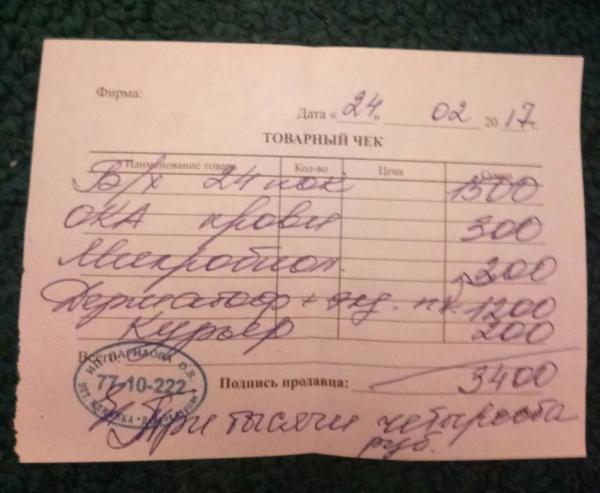 Фирма:
Дата «24» 02 2017 г.
ТОВАРНЫЙ ЧЕК
Наименование товара Кол-во Цена Сумма
Б/х 24 пок 1500
ОКА крови 300
Микробиол. 200
Дерматоф + 1200
Курьер 200
Всего
77-10-222
Подпись продавца: 3400
Три тысячи четыреста
руб.